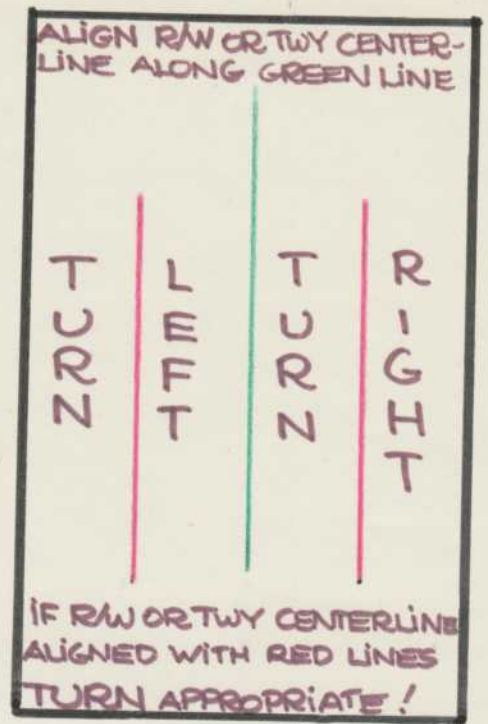 ALIGN R/W OR TWY CENTER-
LINE ALONG GREEN LINE
TURN
LEFT
TURN
RIGHT
IF R/W OR TWY CENTERLINE
ALIGNED WITH RED LINES
TURN APPROPRIATE!